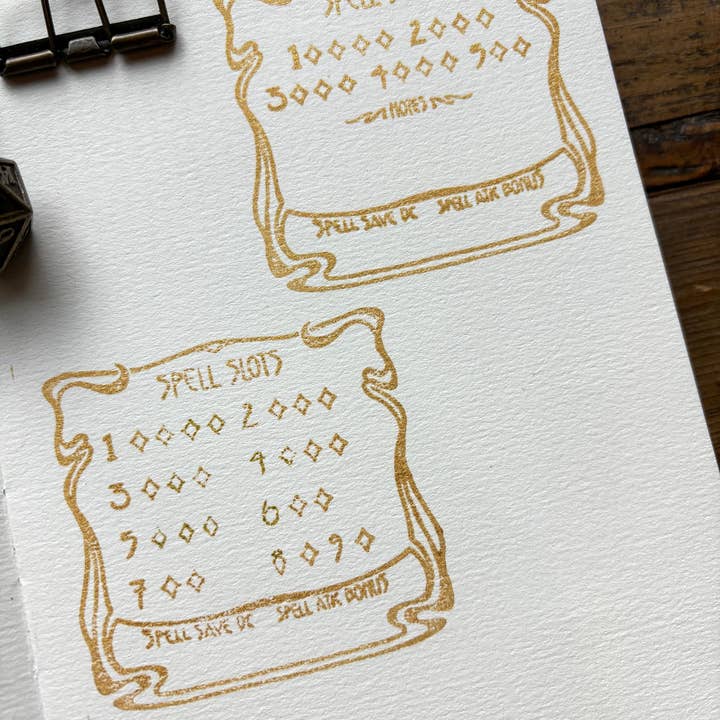 SPELL
1 2
3 4 5
NOTES
SPELL SAVE DC SPELL ATK BONUS
SPELL SLOTS
1 2
3 4
5 6
7 8 9
SPELL SAVE DC SPELL ATK BONUS